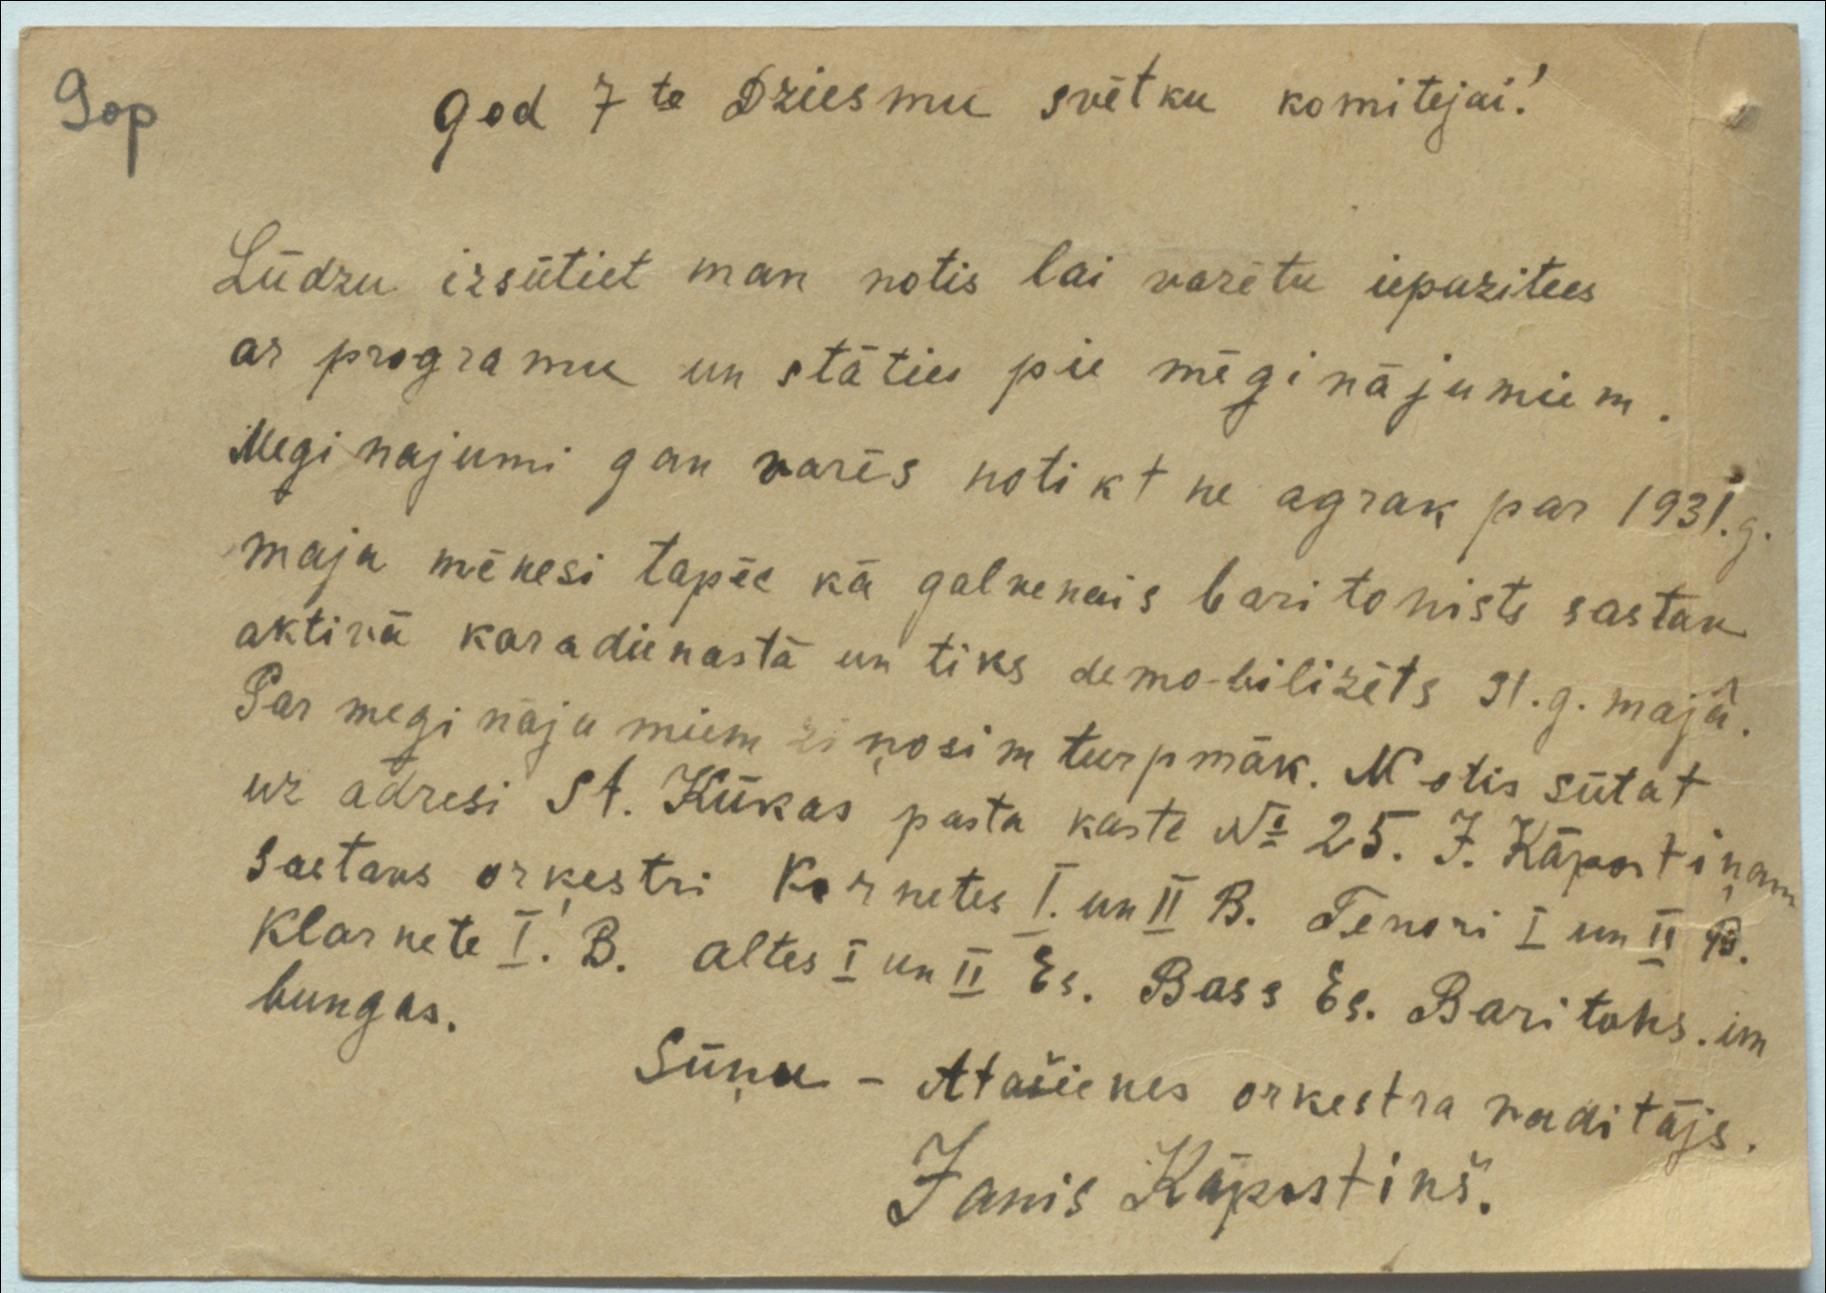 God 7 to Dziesmu svētku komitejai!
Lūdzu izsūtiet man notis lai varētu iepazitees
ar programu un stāties pie mēginājumiem.
Meginajumi gan varēs notikt ne agrak par 1931.g.
maja mēnesi tapēc kā galvenais baritonists sastav
aktivā karadienastā un tiks demobilizēts 31.g. majā.
Par meginājumiem ziņosim turpmāk. Notis sūtat
uz adresi St. Kūkas pasta kaste № 25. J. Kāpostiņam
Saetavs orķestri Kornetes I. un II B. Tenori I un II B.
Klarnete I. B. altes I un II Es. Bass Es. Baritons. un
bungas.
Sūņu - Atašienes orkestra vaditājs.
Janis Kāpostinš.